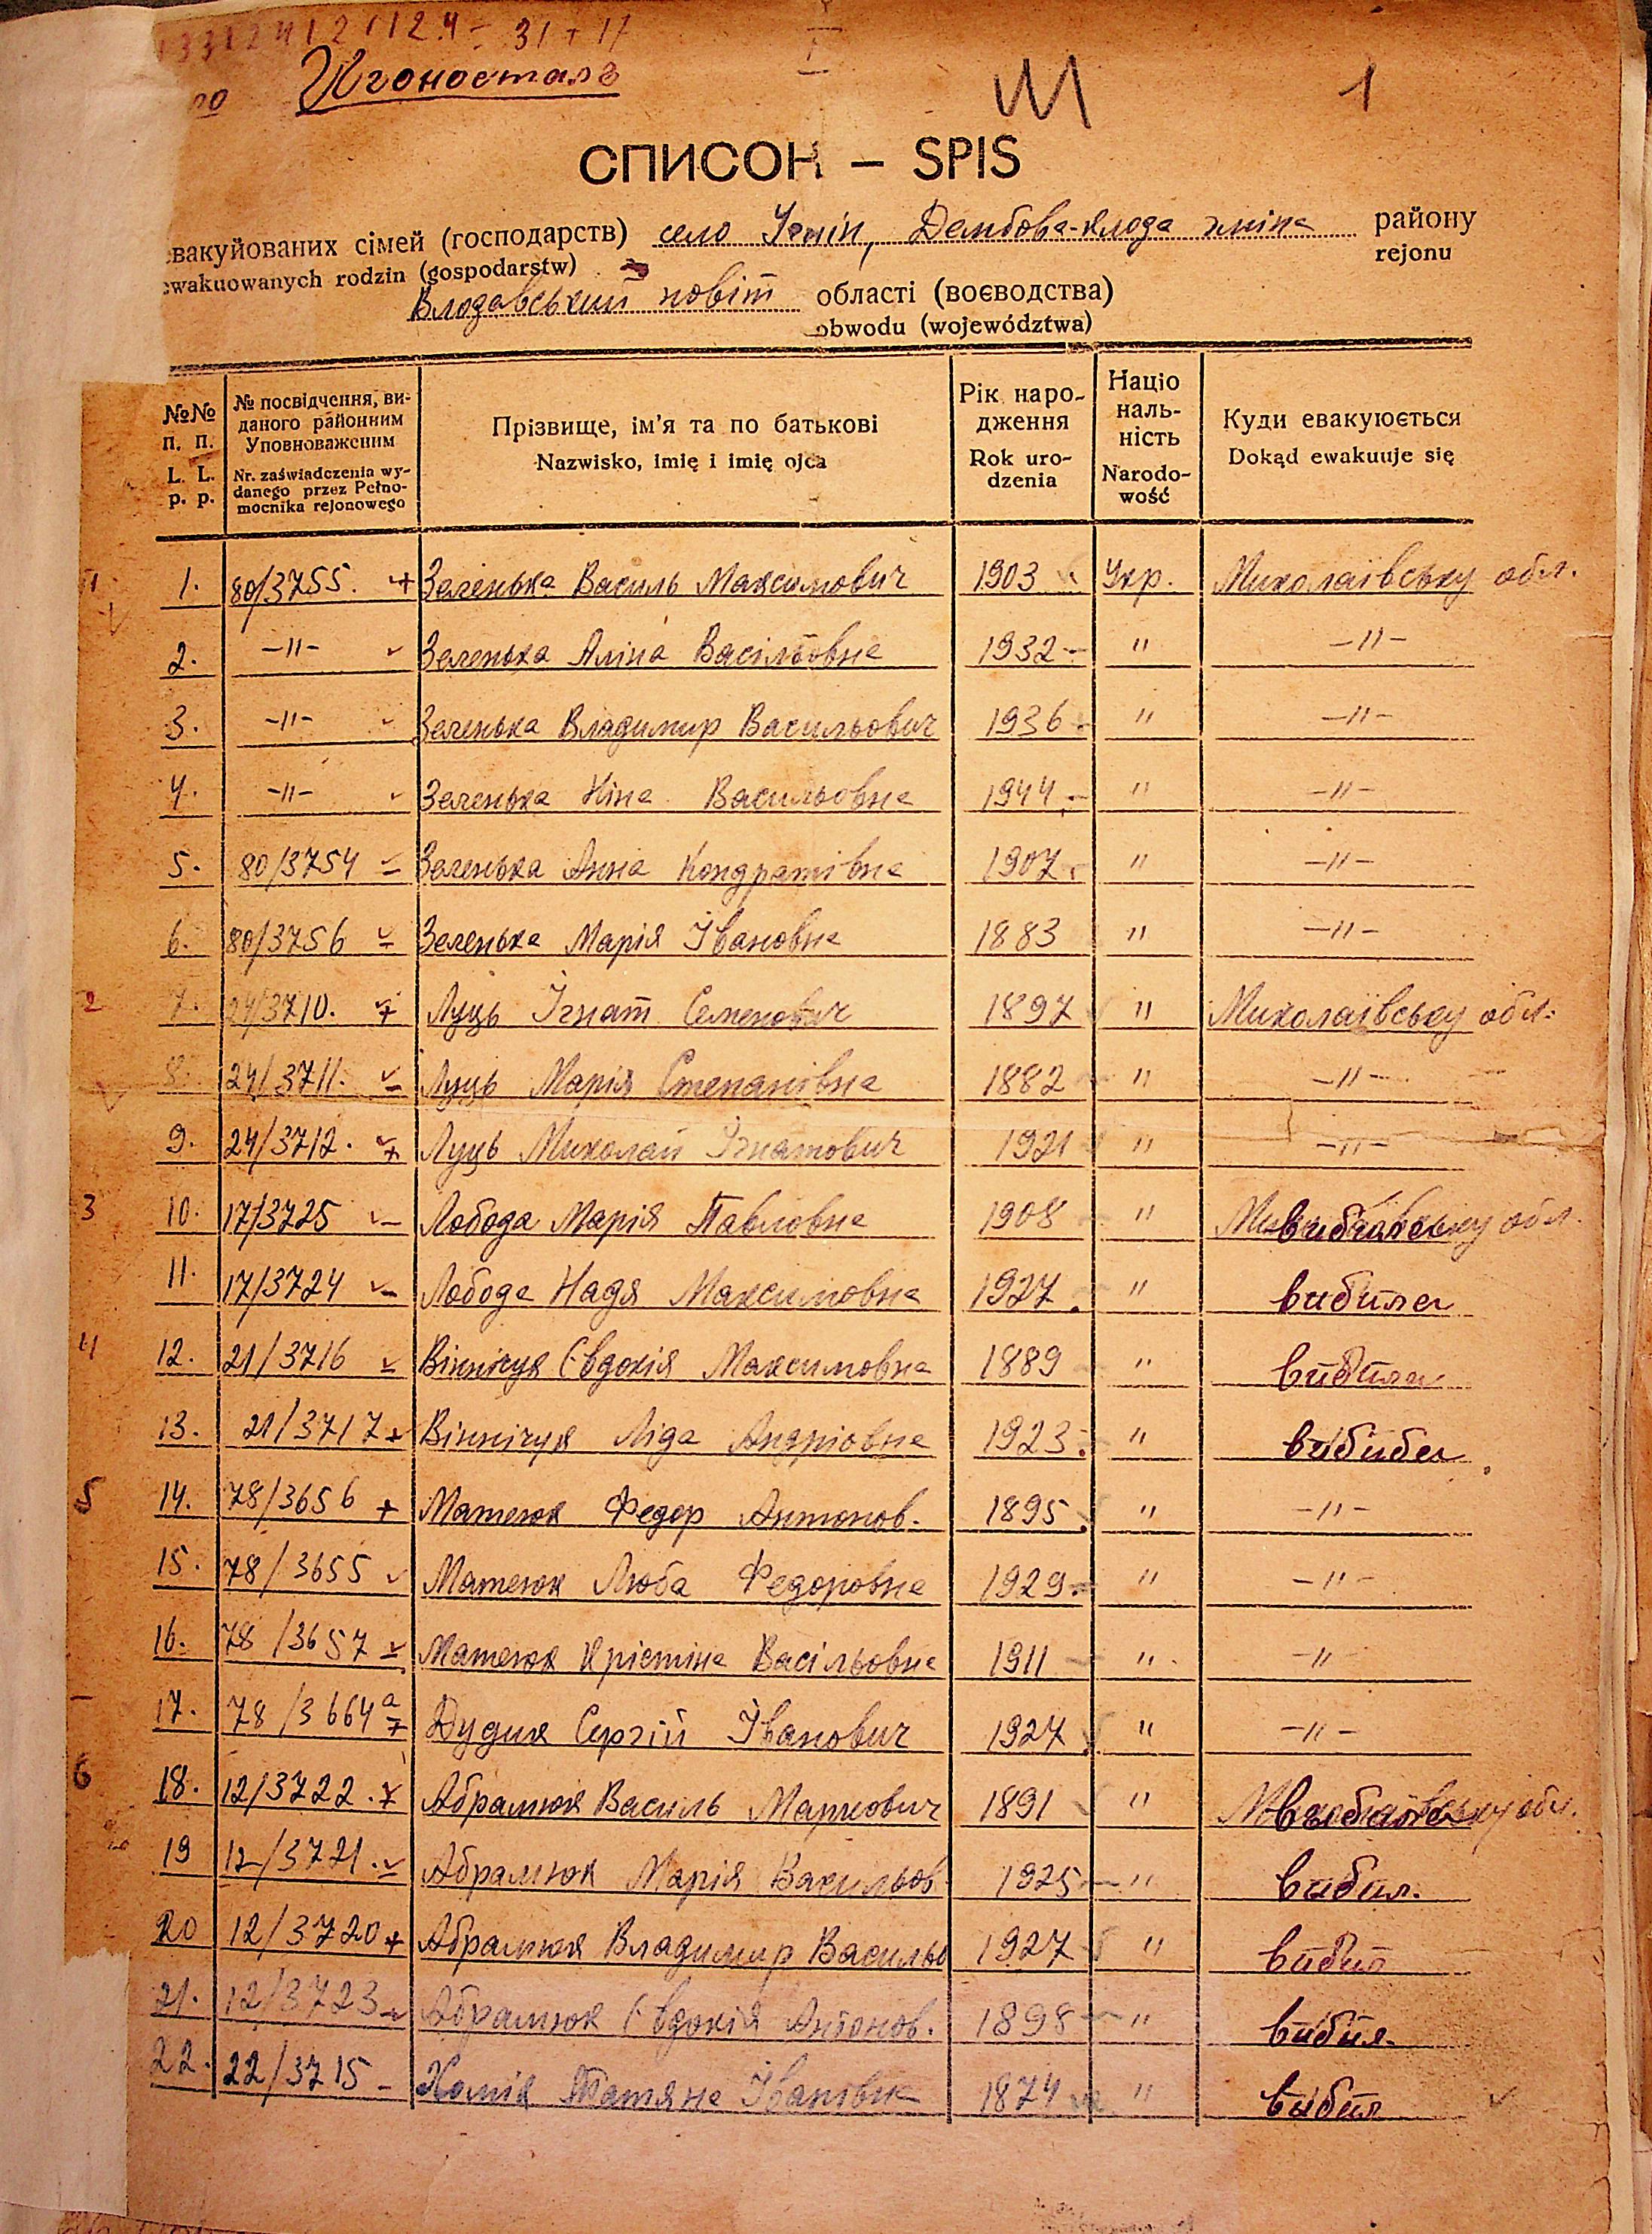 31 + 11
1
СПИСОК – SPIS
евакуйованих сімей (господарств) село Уснін, Дембова-Клода гміна району
ewakuowanych rodzin (gospodarstw) rejonu
Влодавський повіт області (воєводства)
obwodu (województwa)
№№ п. п. L. L. p. p. № посвідчення, виданого районним Уповноваженим Nr. zaświadczenia wydanego przez Pełnomocnika rejonowego Прізвище, ім'я та по батькові Nazwisko, imię i imię ojca Рік народження Rok urodzenia Націо наль- ність Narodo- wość Куди евакуюється Dokąd ewakuuje się
1 1. 80/3755. + Зеленька Василь Максимович 1903 Укр. Миколаївську обл.
2. –"– Зеленька Аліна Васільовна 1932 – " –"–
3. –"– Зеленька Владимир Васильович 1936 – " –"–
4. –"– Зеленька Ніна Васильовна 1944 – " –"–
5. 80/3754 – Зеленька Анна Кондратівна 1907 " –"–
6. 80/3756 – Зеленька Марія Івановна 1883 " –"–
2 7. 24/3710. + Луць Ігнат Семенович 1897 " Миколаївську обл.
8. 24/3711. – Луць Марія Степанівна 1882 " –"–
9. 24/3712. + Луць Миколай Ігнатович 1921 " –"–
3 10. 17/3725 – Лобода Марія Павловна 1908 " Миколаївську обл.
11. 17/3724 – Лобода Надя Максимовна 1927. " вибила
4 12. 21/3716 – Віннічук Євдокія Максимовна 1889 " вибила
13. 21/3717 + Віннічук Ліда Андріовна 1923. "
5 14. 78/3656 + Матеюк Федор Антонов. 1895 " –"–
15. 78/3655 Матеюк Люба Федоровна 1929 – " –"–
16. 78/3657 – Матеюк Крістіна Васільовна 1911 – " –"
17. 78/3664 а + Дудик Сергій Іванович 1927 " –"–
6 18. 12/3722. + Абрамюк Василь Маркович 1891 " обл.
19 12/3721. – Абрамюк Марія Васильов. 1925 – " вибил.
20 12/3720 + Абрамюк Владимир Василь 1927 " вибил
21. 12/3723 – Абрамюк Євдокія Антонов. 1898 – " вибил.
22. 22/3715 – Хомік Татяна Іванівна 1874 " выбил